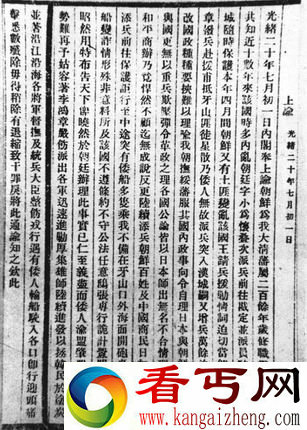 上諭 光緒二十年七月初一日
光緒二十年七月初一日內閣奉上諭朝鮮為我大清藩屬二百餘年歲修職
共知近十數年來該國時多內亂朝廷字小為懷疊次派兵前往戡定並派員
城隨時保護本年四月間朝鮮又有土匪變亂該國王請兵援勦情詞迫切當
章撥兵赴援甫抵牙山匪徒星散乃倭人無故派兵突入漢城嗣又增兵萬餘
改國政種種要挾難以理喻我朝撫綏藩服其國內政事向令自理日本與朝
與國更無以重兵欺壓強令革政之理各國公論皆以日本師出無名不合情理
和平商辦乃竟悍然不顧迄無成說反更陸續添兵朝鮮百姓及中國商民日
添兵前往保護詎行至中途突有倭船多隻乘我不備在牙山口外海面開礮
船變詐情形殊非意料所及該國不遵條約不守公法任意鴟張專行詭計釁
昭然用特布告天下俾曉然於朝廷辦理此事實已仁至義盡而倭人渝盟肇
勢難再予姑容著李鴻章嚴飭派出各軍迅速進勦厚集雄師陸續進發以拯韓民於塗炭
並著沿江沿海各將軍督撫及統兵大臣整飭戎行遇有倭人輪船駛入各口即行迎頭痛
擊悉數殲除毋得稍有退縮致干罪戾將此通諭知之欽此
看丐网
www.kangaizheng.com